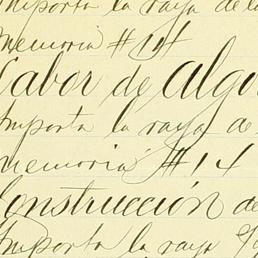 Importa la raya de la
Memoria #14
Labor de Algo
Importa la raya de
Memoria #14
Construcción de
Importa la raya